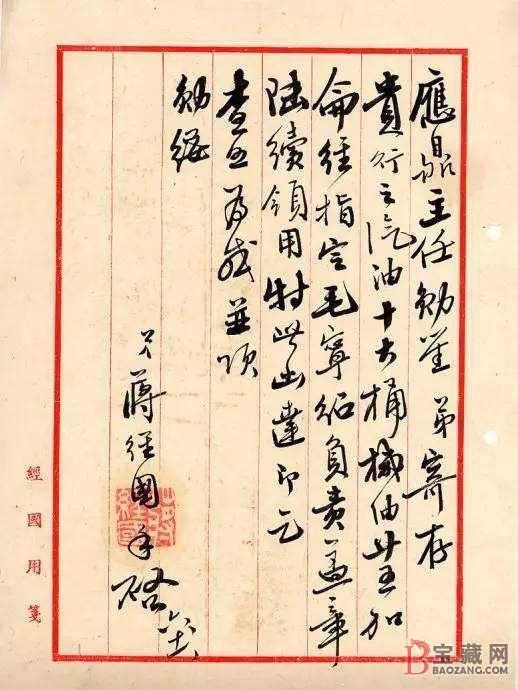 應鼎主任勛鑒 弟寄存
貴行之汽油十大桶機油廿五加
侖經指定毛寧紹負責蓋章
陸續領用特此函達即乞
查照為感並頌
勛綏
弟蔣經國手啟
經國用箋
宝藏网
BAOZANG.COM